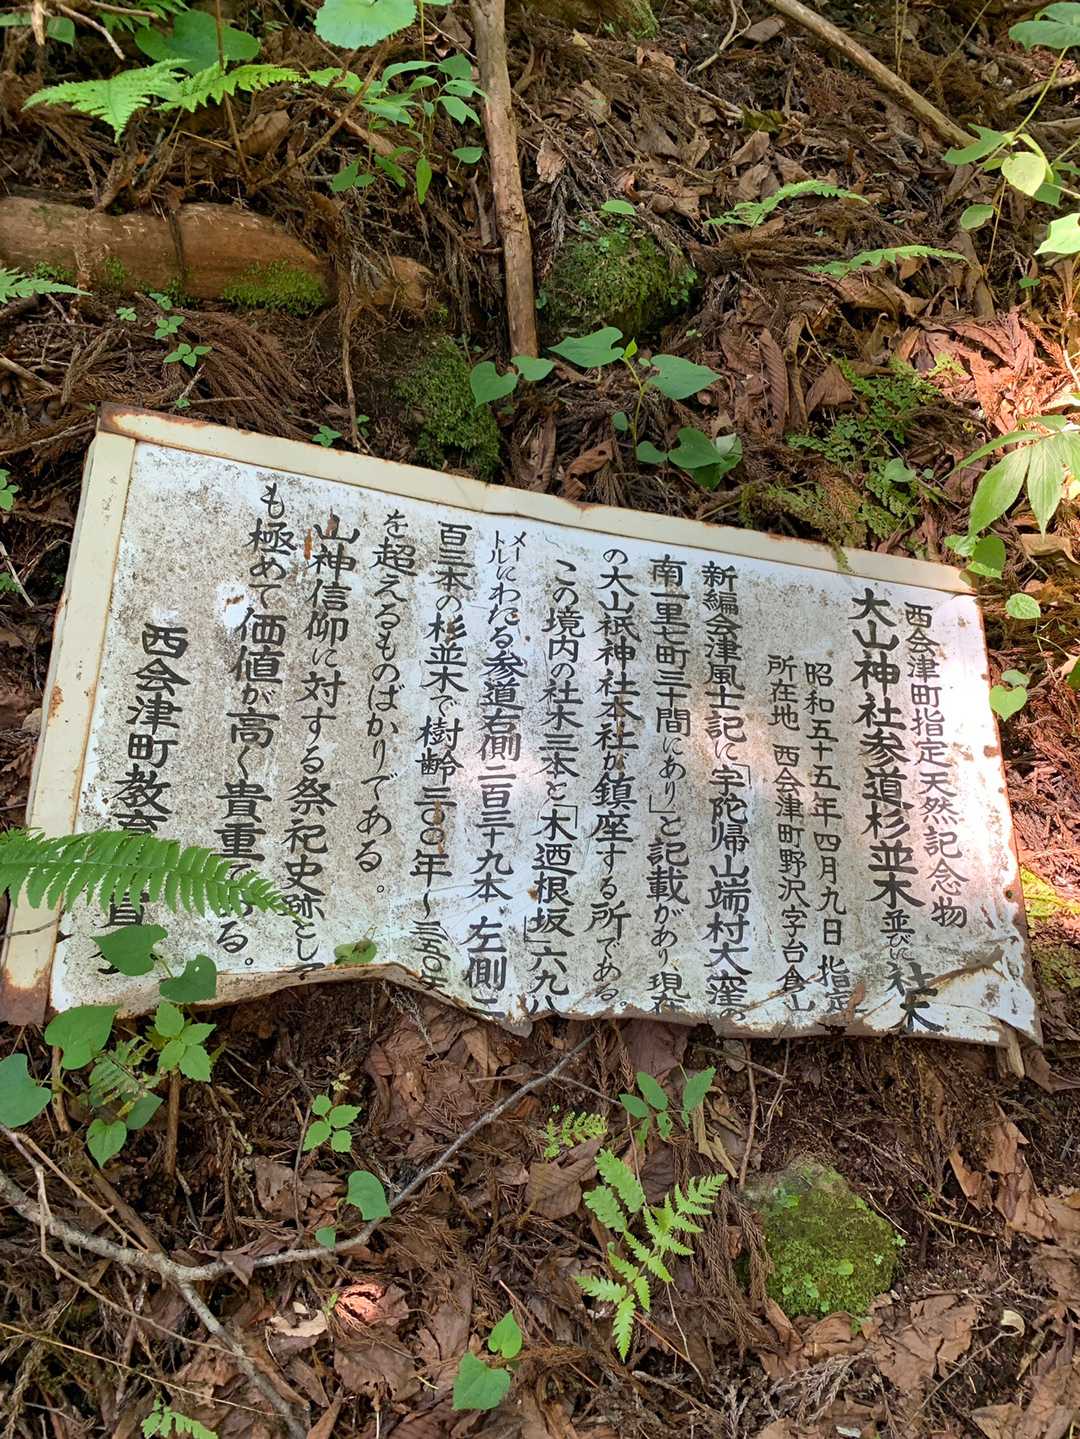 西会津町指定天然記念物
大山神社参道杉並木並びに社木
昭和五十五年四月九日指定
所在地 西会津町野沢字台倉山
新編会津風土記に「宇陀帰山端村大窪の
南一里七町三十間にあり」と記載があり現在
の大山祇神社本社が鎮座する所である。
この境内の社木三本と「木迺根坂」六九八
メートルにわたる参道右側二百三十九本左側二
百二本の杉並木で樹齢三〇〇年～三五〇年
を超えるものばかりである。
山神信仰に対する祭祀史跡として
も極めて価値が高く貴重である。
西会津町教育